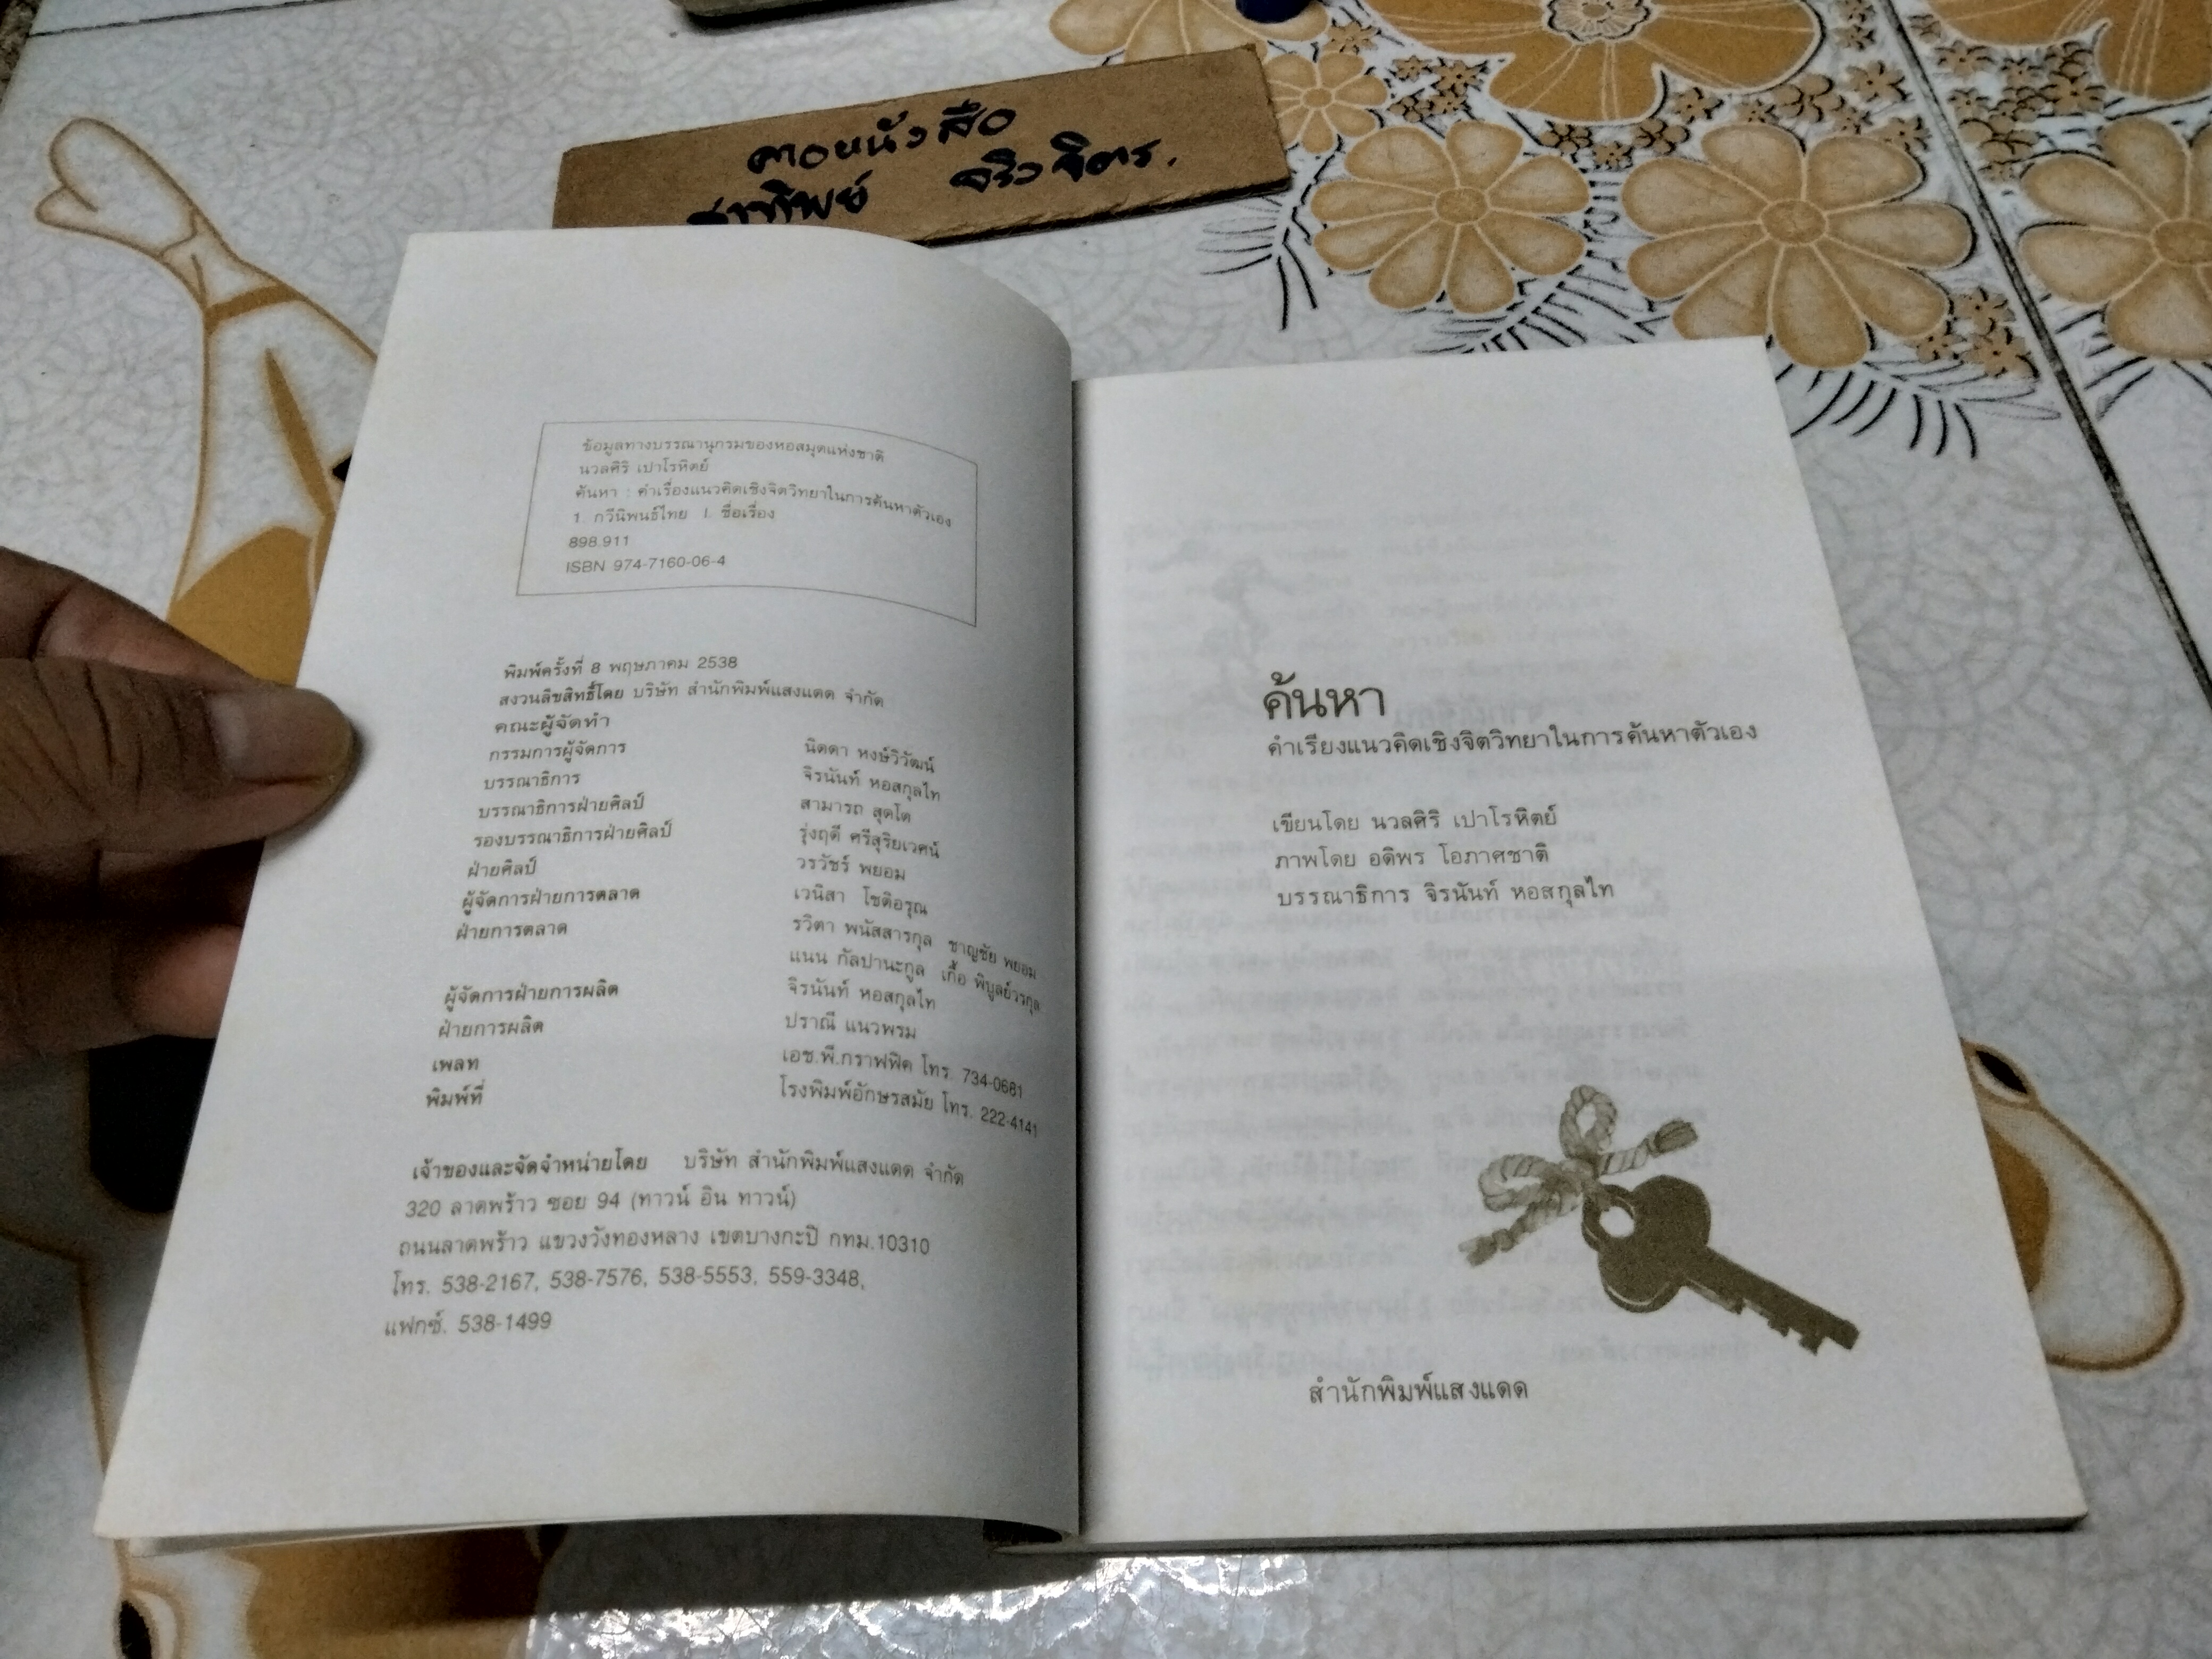 ข้อมูลทางบรรณานุกรมของหอสมุดแห่งชาติ
นวลศิริ เปาโรหิตย์
ค้นหา : คำเรื่องแนวคิดเชิงจิตวิทยาในการค้นหาตัวเอง
1. กวีนิพนธ์ไทย I. ชื่อเรื่อง
898.911
ISBN 974-7160-06-4
พิมพ์ครั้งที่ 8 พฤษภาคม 2538
สงวนลิขสิทธิ์โดย บริษัท สำนักพิมพ์แสงแดด จำกัด
คณะผู้จัดทำ
กรรมการผู้จัดการ นิดดา หงษ์วิวัฒน์
บรรณาธิการ จิรนันท์ หอสกุลไท
บรรณาธิการฝ่ายศิลป์ สามารถ สุดโต
รองบรรณาธิการฝ่ายศิลป์ รุ่งฤดี ศรีสุริยเวศน์
ฝ่ายศิลป์ วรวัชร์ พยอม
ผู้จัดการฝ่ายการตลาด เวนิสา โชติอรุณ
ฝ่ายการตลาด รวิตา พนัสสารกุล ชาญชัย พยอม
แนน กัลปานะกูล เกื้อ พิบูลย์วรกุล
ผู้จัดการฝ่ายการผลิต จิรนันท์ หอสกุลไท
ฝ่ายการผลิต ปราณี แนวพรม
เพลท เอช.พี.กราฟฟิค โทร. 734-0681
พิมพ์ที่ โรงพิมพ์อักษรสมัย โทร. 222-4141
เจ้าของและจัดจำหน่ายโดย บริษัท สำนักพิมพ์แสงแดด จำกัด
320 ลาดพร้าว ซอย 94 (ทาวน์ อิน ทาวน์)
ถนนลาดพร้าว แขวงวังทองหลาง เขตบางกะปิ กทม.10310
โทร. 538-2167, 538-7576, 538-5553, 559-3348,
แฟกซ์. 538-1499
ค้นหา
คำเรียงแนวคิดเชิงจิตวิทยาในการค้นหาตัวเอง
เขียนโดย นวลศิริ เปาโรหิตย์
ภาพโดย อดิพร โอภาศชาติ
บรรณาธิการ จิรนันท์ หอสกุลไท
สำนักพิมพ์แสงแดด